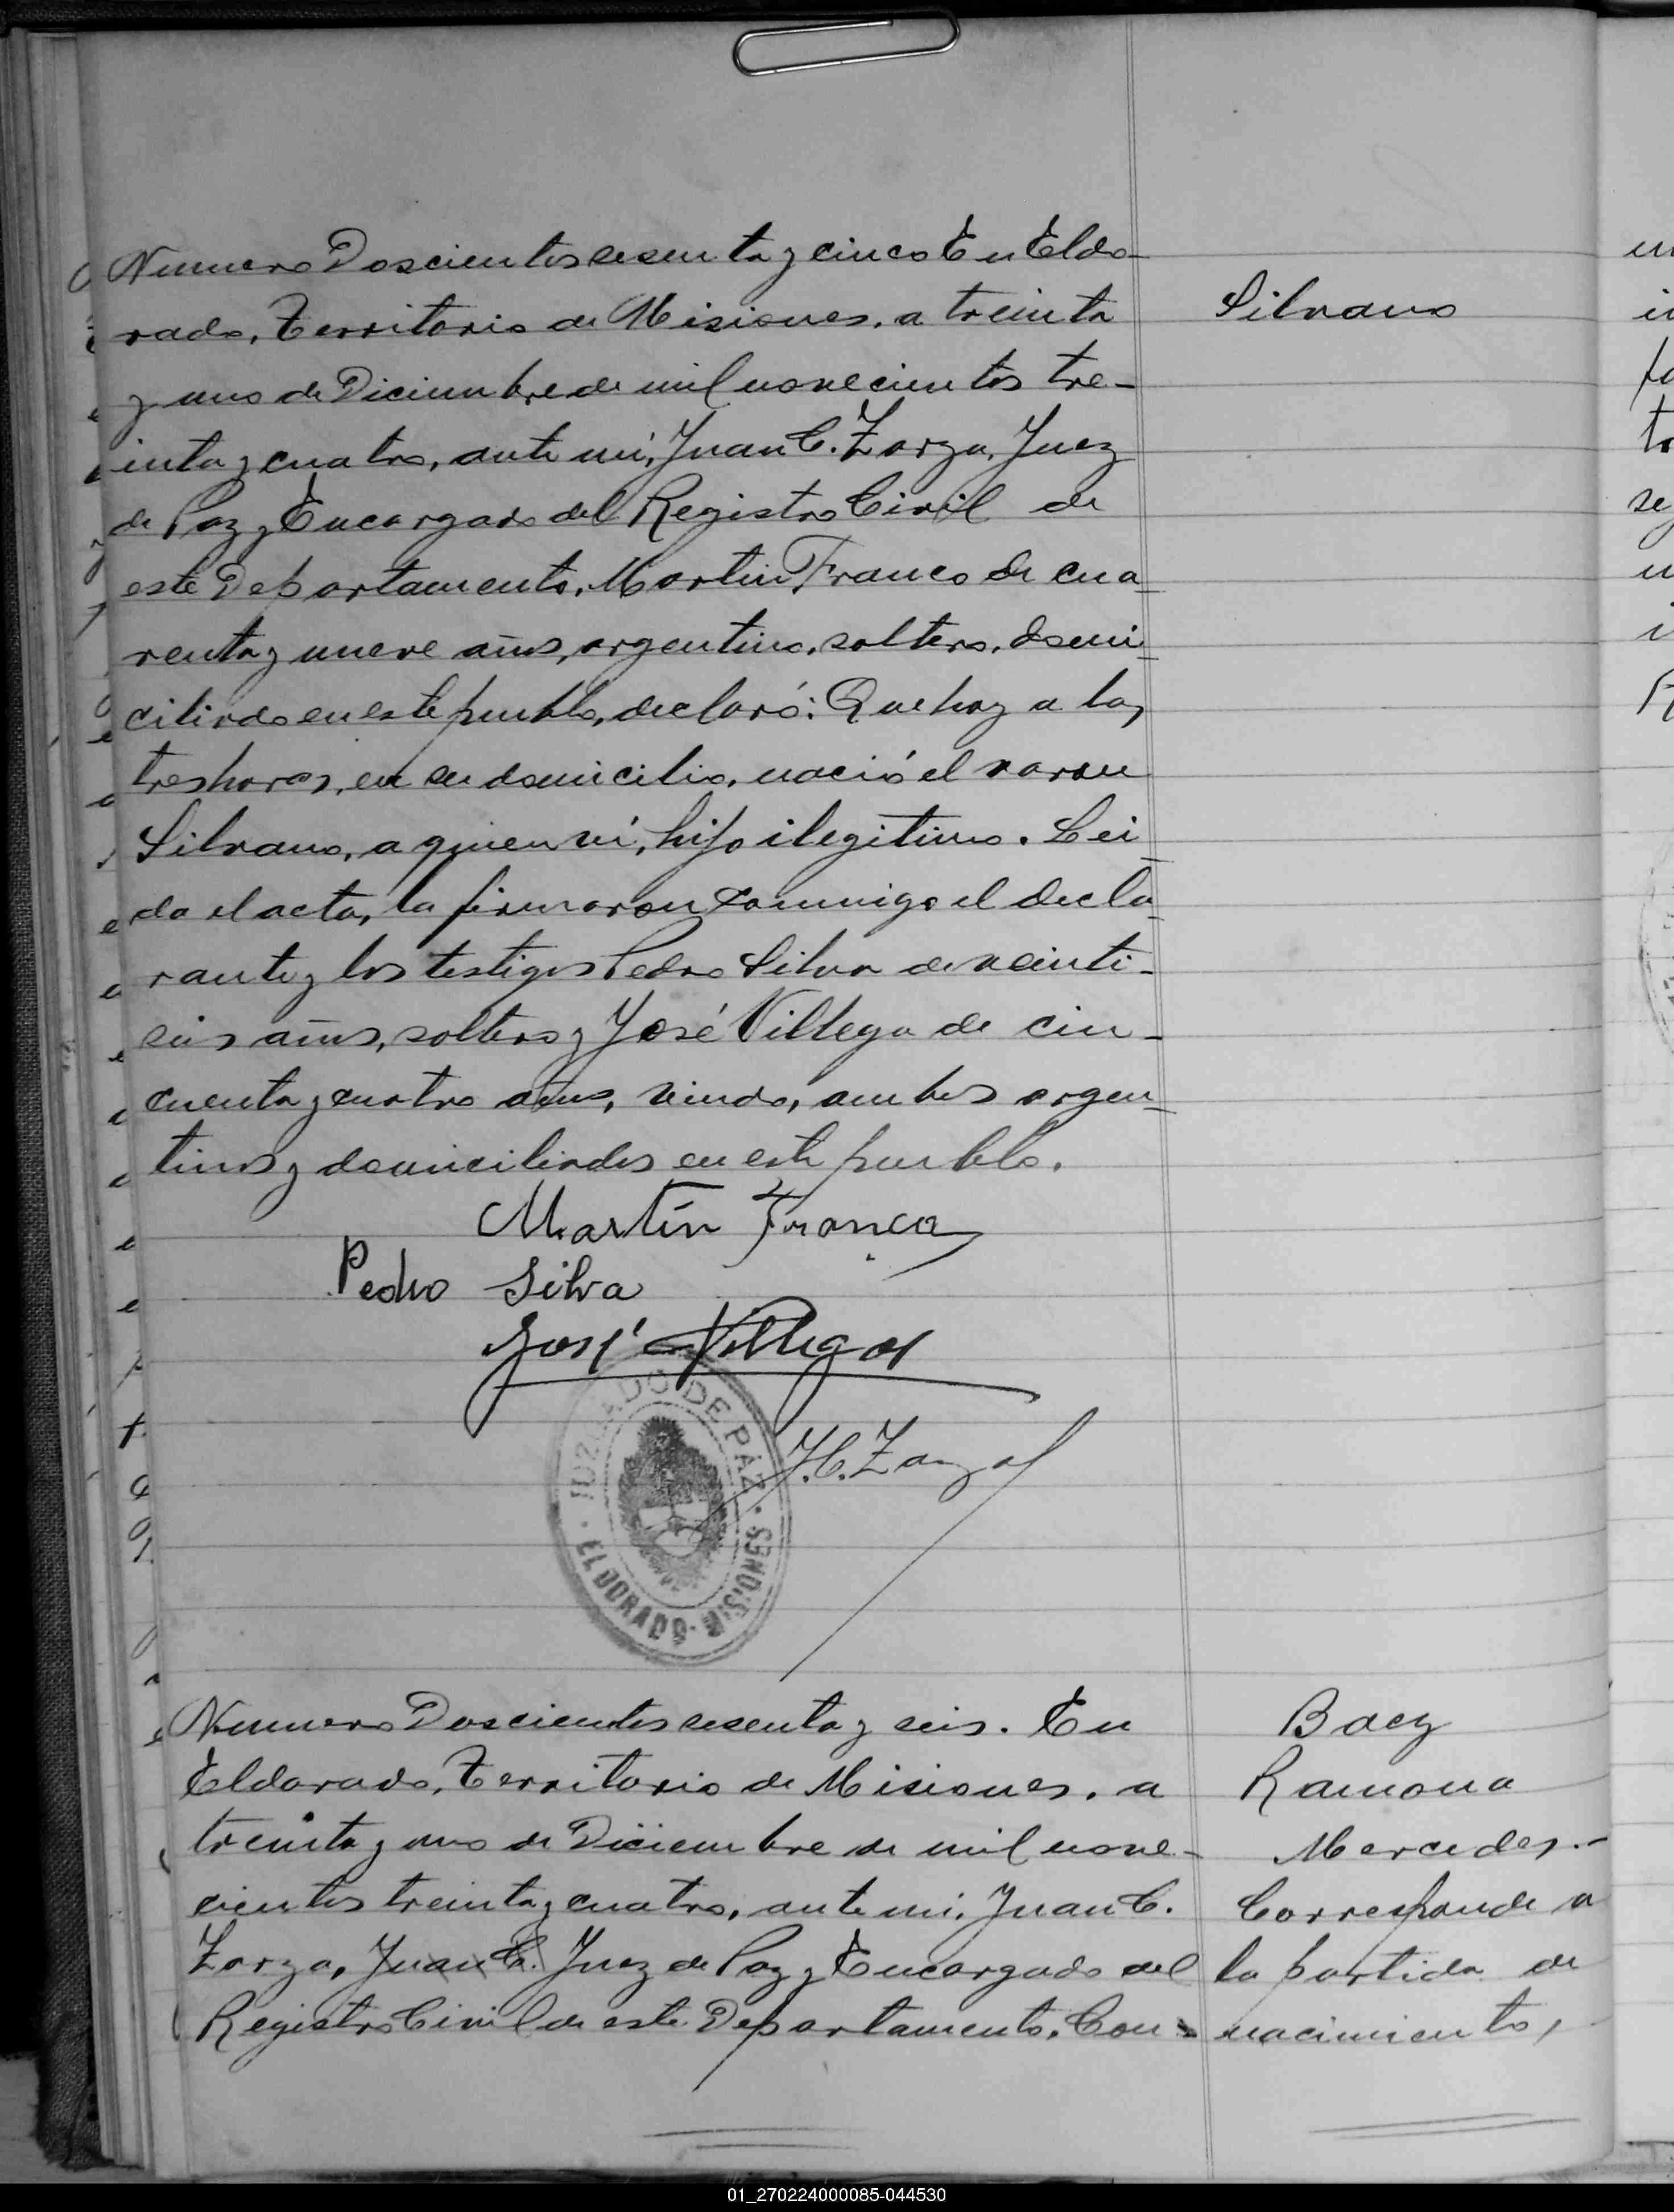 Numero Doscientos sesenta y cinco En Eldo-
rado, Territorio de Misiones, a treinta
y uno de Diciembre de mil novecientos tre-
inta y cuatro, ante mi, Juan C. Zarza, Juez
de Paz y Encargado del Registro Civil de
este Departamento, Martin Franco de cua-
renta y nueve años, argentino, soltero, domi-
ciliado en este pueblo, declaró: Que hoy a las
tres horas, en su domicilio, nació el varon
Silvano, a quien ví, hijo ilegitimo. Lei-
da el acta, la firmaron conmigo el decla-
rante y los testigos Pedro Silva de veinti-
seis años, soltero y José Villega de cin-
cuenta y cuatro años, viudo, ambos argen-
tinos y domiciliados en este pueblo.
Silvano
Martín Franco
Pedro Silva
José Villegas
J. C. Zarza
JUZGADO DE PAZ
ELDORADO - MISIONES
Numero Doscientos sesenta y seis. En
Eldorado, Territorio de Misiones, a
treinta y uno de Diciembre de mil nove-
cientos treinta y cuatro, ante mi, Juan C.
Zarza, Juan C. Juez de Paz y Encargado del
Registro Civil de este Departamento, Con-
Baez
Ramona
Mercedes.-
Corresponde a
la partida de
nacimiento,
01_270224000085-044530